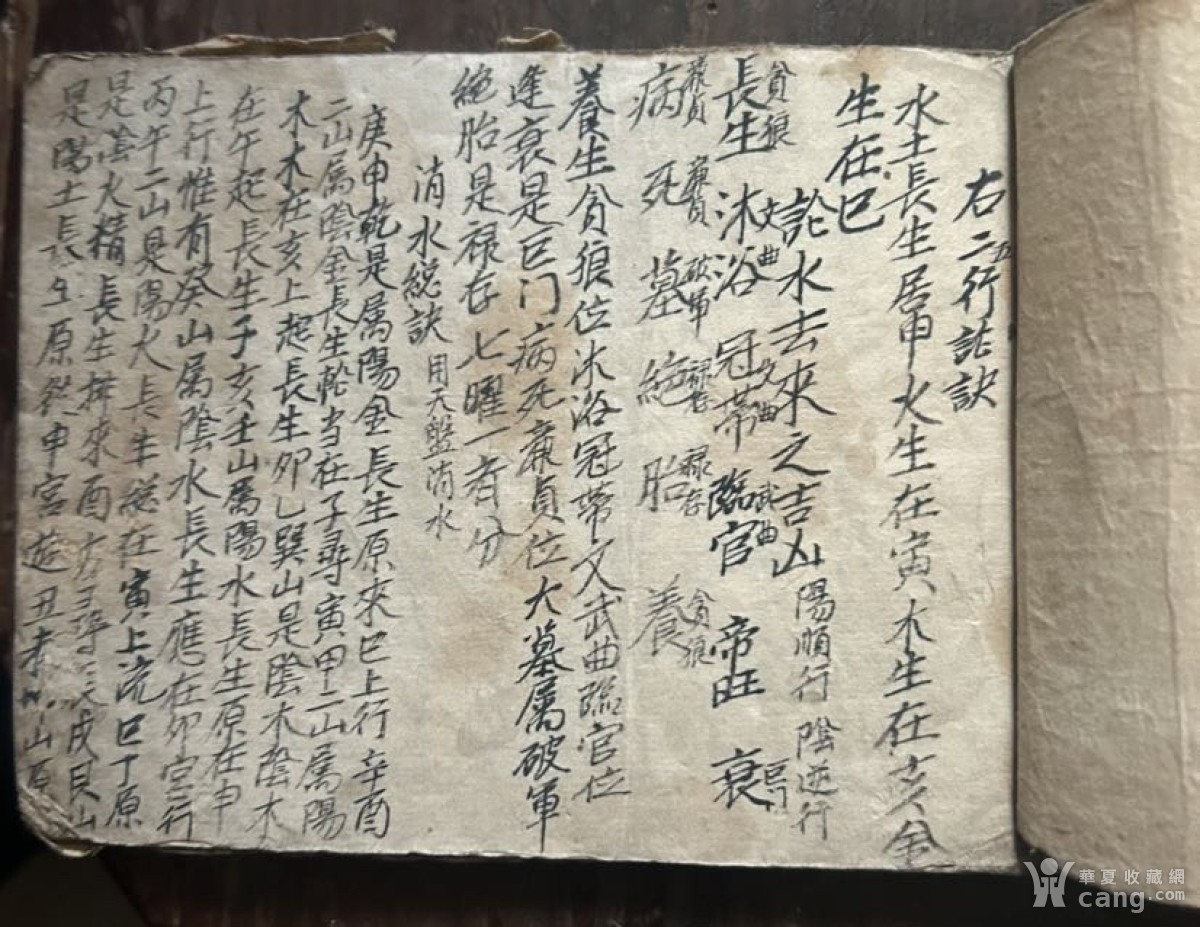 右二五行訣訣
水土長生居申火生在寅木生在亥金
生在巳
訟水去來之吉凶 陽順行 陰逆行
貪狼 文曲 文曲 武曲 巨門
長生 沐浴 冠帶 臨官 帝旺 衰
廉貞 廉貞 破軍 祿存 祿存 貪狼
病 死 墓 絕 胎 養
養生貪狼位沐浴冠帶文武曲臨官位
逢衰是巨门病死廉貞位大墓属破軍
絕胎是禄存七曜一者分
消水総訣 用天盤消水
庚申乾是属陽金長生原來巳上行辛酉
二山属陰金長生尋寅甲二山属陽
木木在亥上起長生卯乙巽山是陰木陰木
在午起長生子亥壬山属陽水長生原在申
上行惟有癸山属陰水長生應在卯宮行
丙午二山是陽火長生総在寅上流巳丁原
是陰火精長生排來酉戌艮山
是陽土長生原從申宮遊丑未山原
華夏收藏網
cang.com